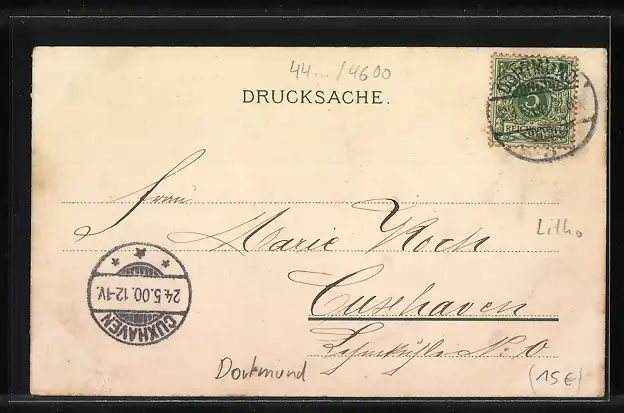 44... /4600
DRUCKSACHE.
DORTMUND
5
REICHSPOST
Frau
Marie Koch
Litho
Cuxhaven
24.5.00.12-1V.
CUXHAVEN
N. 0
Dortmund
(15€)